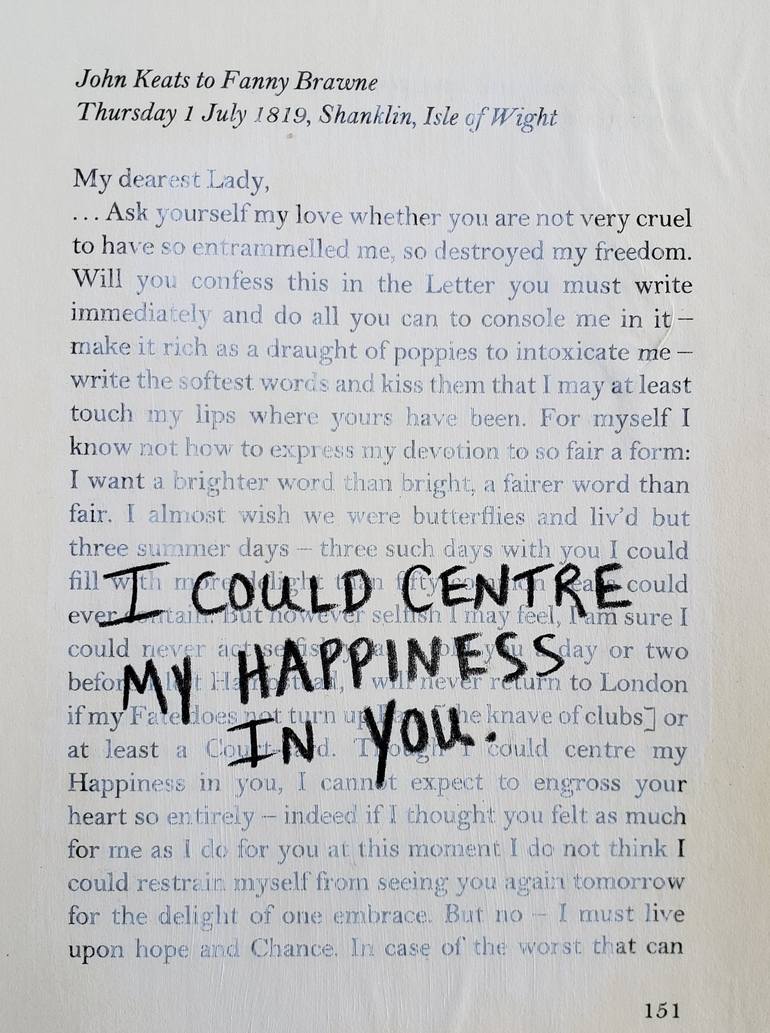 John Keats to Fanny Brawne
Thursday 1 July 1819, Shanklin, Isle of Wight
My dearest Lady,
... Ask yourself my love whether you are not very cruel
to have so entrammelled me, so destroyed my freedom.
Will you confess this in the Letter you must write
immediately and do all you can to console me in it –
make it rich as a draught of poppies to intoxicate me –
write the softest words and kiss them that I may at least
touch my lips where yours have been. For myself I
know not how to express my devotion to so fair a form:
I want a brighter word than bright, a fairer word than
fair. I almost wish we were butterflies and liv'd but
three summer days – three such days with you I could
fill with more delight than fifty common years could
I COULD CENTRE
ever contain. But however selfish I may feel, I am sure I
could never act selfishly
day or two
MY HAPPINESS
before I left Hampstead, I will never return to London
if my Fate does not turn up
the knave of clubs] or
IN YOU.
at least a Court-card. Though I could centre my
Happiness in you, I cannot expect to engross your
heart so entirely – indeed if I thought you felt as much
for me as I do for you at this moment I do not think I
could restrain myself from seeing you again tomorrow
for the delight of one embrace. But no – I must live
upon hope and Chance. In case of the worst that can
151